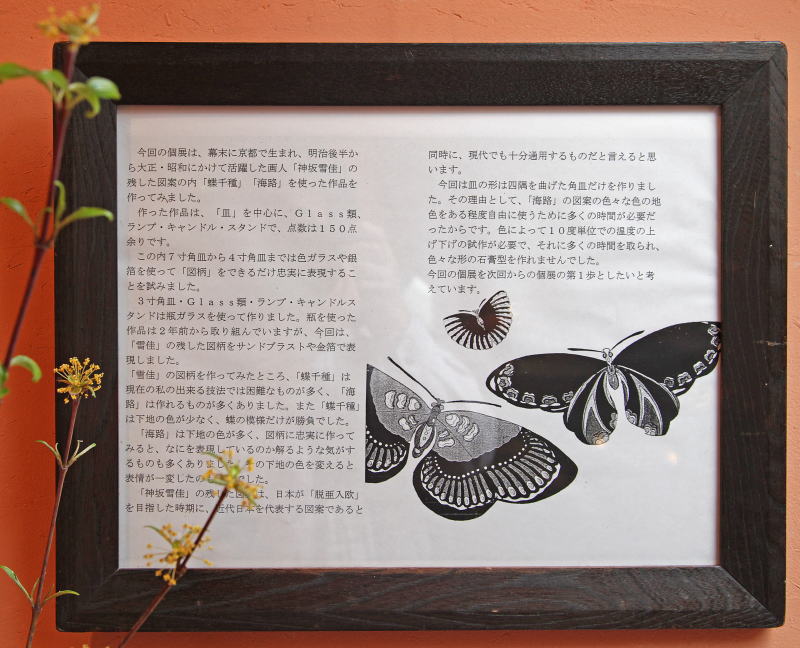 今回の個展は、幕末に京都で生まれ、明治後半か
ら大正・昭和にかけて活躍した画人「神坂雪佳」の
残した図案の内「蝶千種」「海路」を使った作品を
作ってみました。
作った作品は、「皿」を中心に、Ｇｌａｓｓ類、
ランプ・キャンドル・スタンドで、点数は１５０点
余りです。
この内７寸角皿から４寸角皿までは色ガラスや銀
箔を使って「図柄」をできるだけ忠実に表現するこ
とを試みました。
３寸角皿・Ｇｌａｓｓ類・ランプ・キャンドルス
タンドは瓶ガラスを使って作りました。瓶を使った
作品は２年前から取り組んでいますが、今回は、
「雪佳」の残した図柄をサンドブラストや金箔で表
現しました。
「雪佳」の図柄を作ってみたところ、「蝶千種」は
現在の私の出来る技法では困難なものが多く、「海
路」は作れるものが多くありました。また「蝶千種」
は下地の色が少なく、蝶の模様だけが勝負でした。
「海路」は下地の色が多く、図柄に忠実に作って
みると、なにを表現しているのか解るような気がす
るものも多くありました の下地の色を変えると
表情が一変した でした。
「神坂雪佳」の残した図 は、日本が「脱亜入欧」
を目指した時期に、近代日本を代表する図案であると
同時に、現代でも十分通用するものだと言えると思
います。
今回は皿の形は四隅を曲げた角皿だけを作りまし
た。その理由として、「海路」の図案の色々な色の地
色をある程度自由に使うために多くの時間が必要だ
ったからです。色によって１０度単位での温度の上
げ下げの試作が必要で、それに多くの時間を取られ、
色々な形の石膏型を作れませんでした。
今回の個展を次回からの個展の第１歩としたいと考
えています。